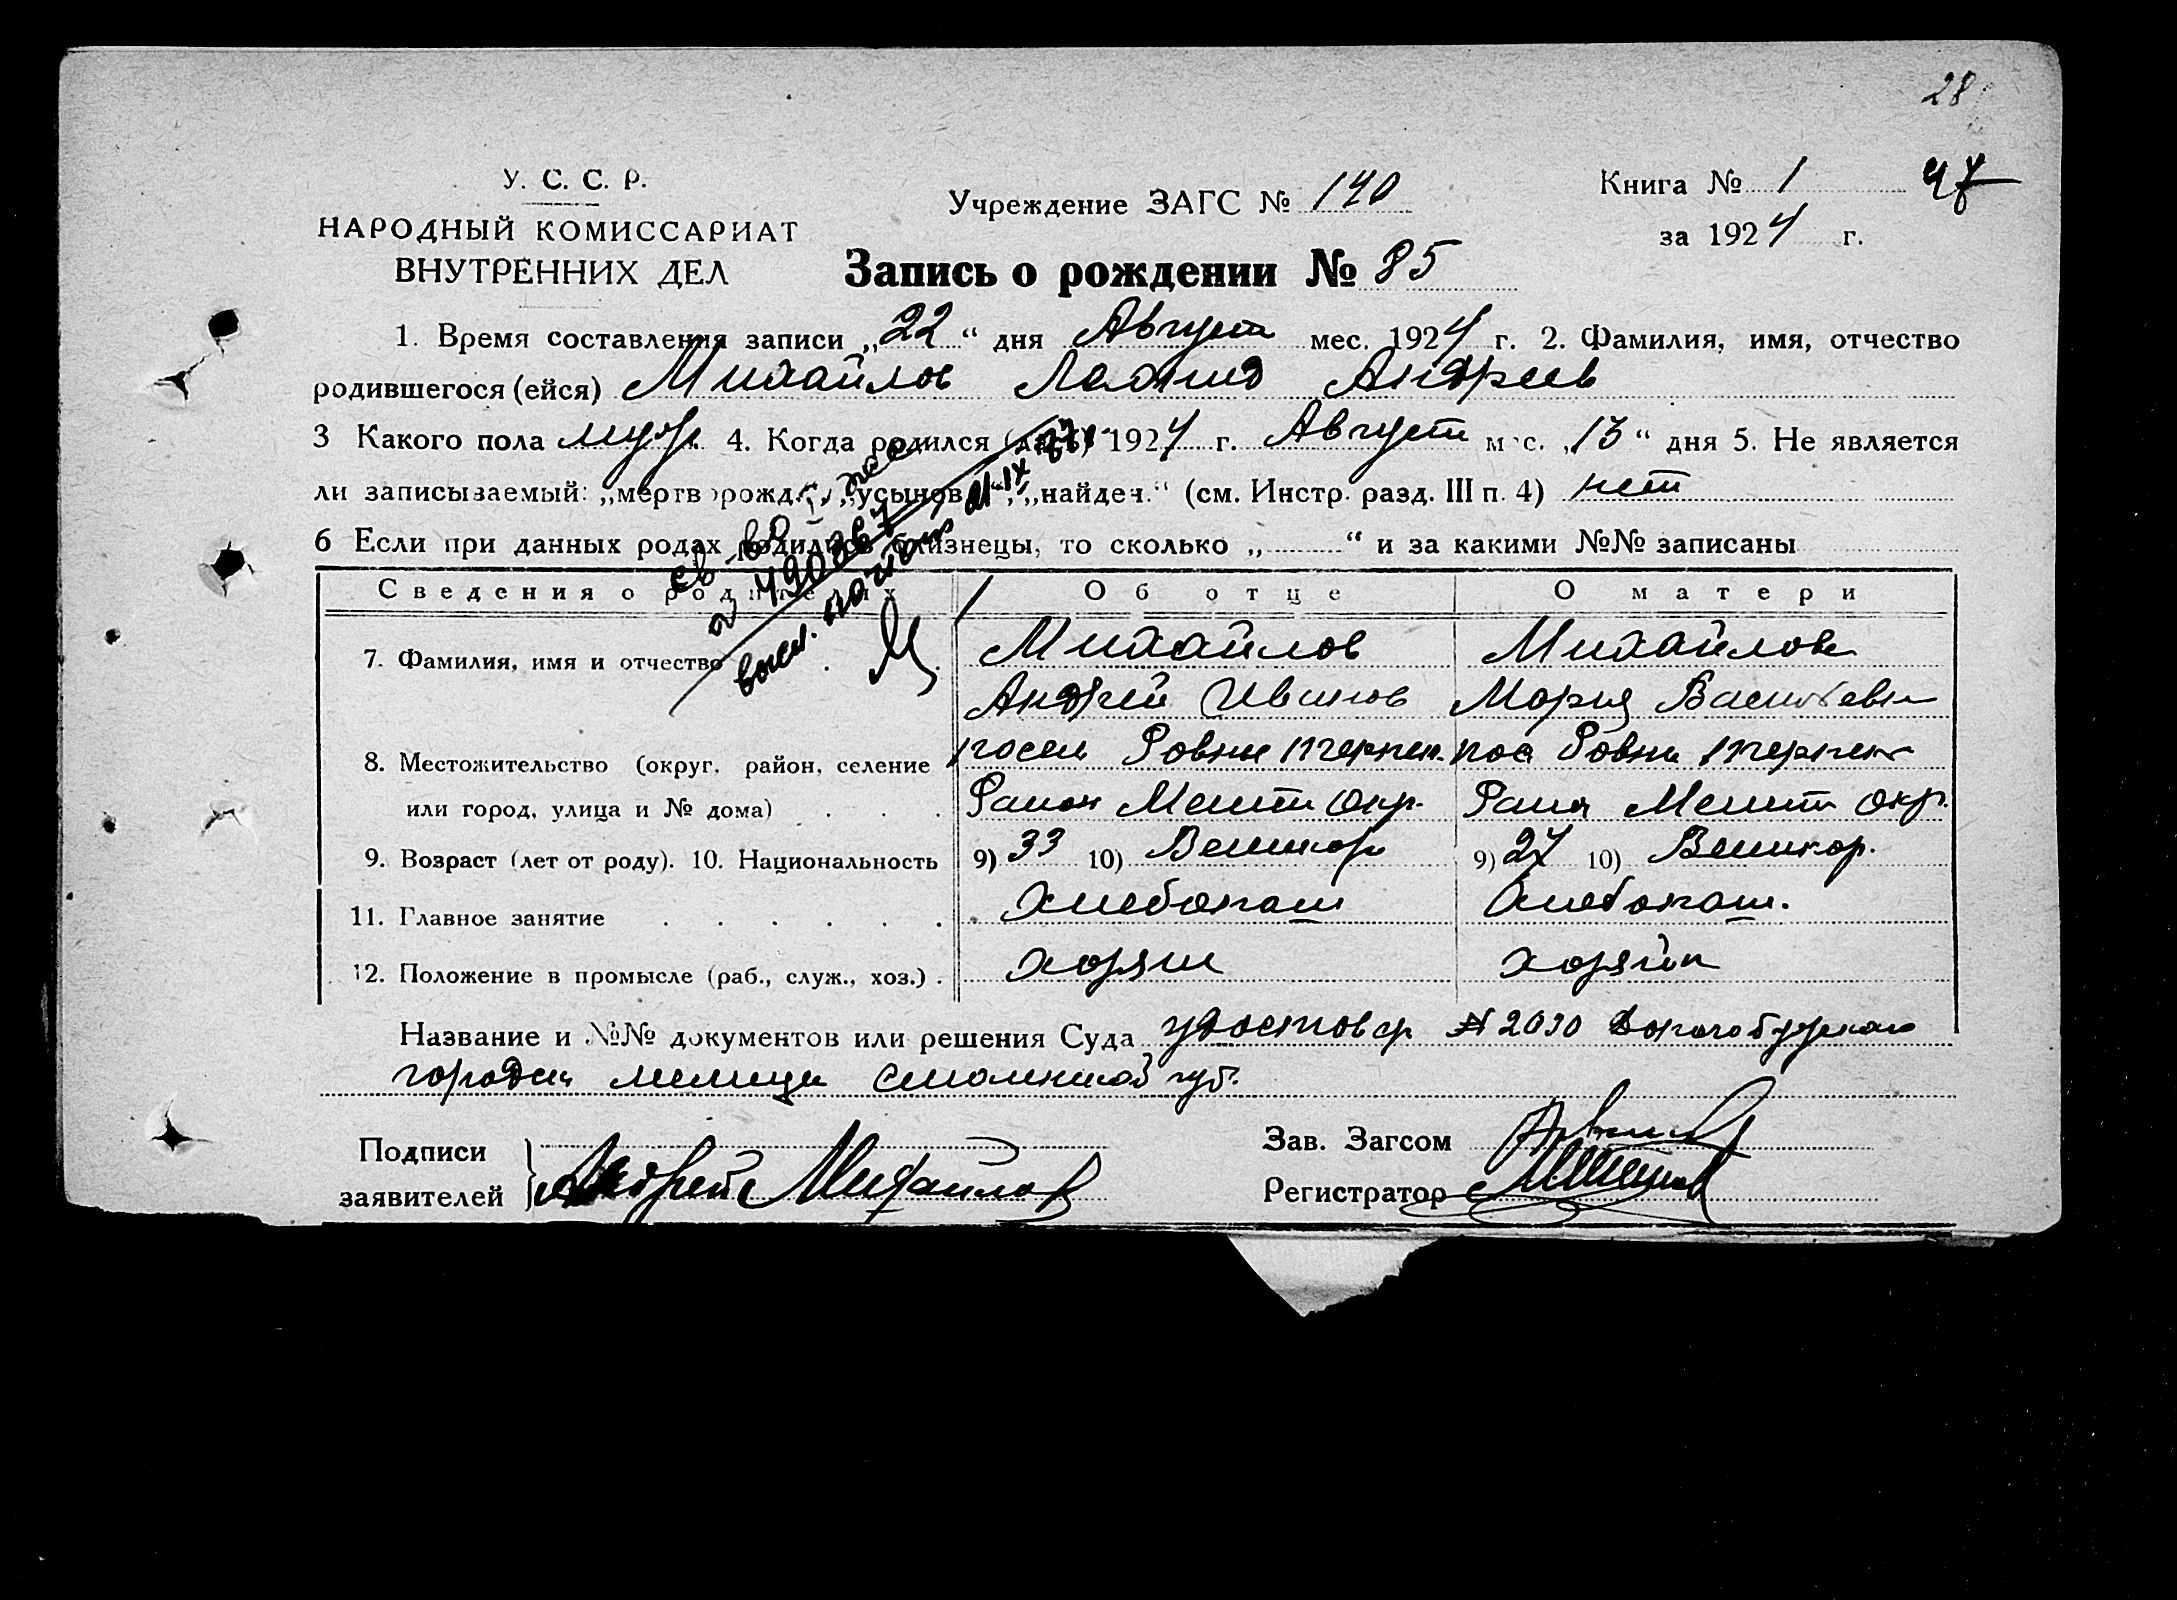 28
У. С. С. Р.
НАРОДНЫЙ КОМИССАРИАТ
ВНУТРЕННИХ ДЕЛ
Учреждение ЗАГС № 140
Запись о рождении № 85
Книга № 1 47
за 1924 г.
1. Время составления записи „22“ дня Август мес. 1924 г. 2. Фамилия, имя, отчество
родившегося (ейся) Михайлов Андреев
3 Какого пола муж. 4. Когда родился 1924 г. Август мес. „13“ дня 5. Не является
ли записываемый: „мертворожд.“, „усынов.“, „найден.“ (см. Инстр. разд. III п. 4) нет
6 Если при данных родах родились близнецы, то сколько „ “ и за какими №№ записаны
Сведения о родителях Об отце О матери
7. Фамилия, имя и отчество Михайлов Михайлов
Андрей Иванов Мария
8. Местожительство (округ, район, селение посел Ровн пос Ровн
или город, улица и № дома) Район Мелит Окр. Мелит Окр.
9. Возраст (лет от роду). 10. Национальность 9) 33 10) Великор 9) 27 10) Великор.
11. Главное занятие Хлебопаш Хлебопаш.
12. Положение в промысле (раб., служ., хоз.) хозяин хозяйк
Название и №№ документов или решения Суда удостовер № 2030 Дорогобужского
городск милиции Смоленской губ.
Подписи
заявителей Андрей Михайлов
Зав. Загсом
Регистратор